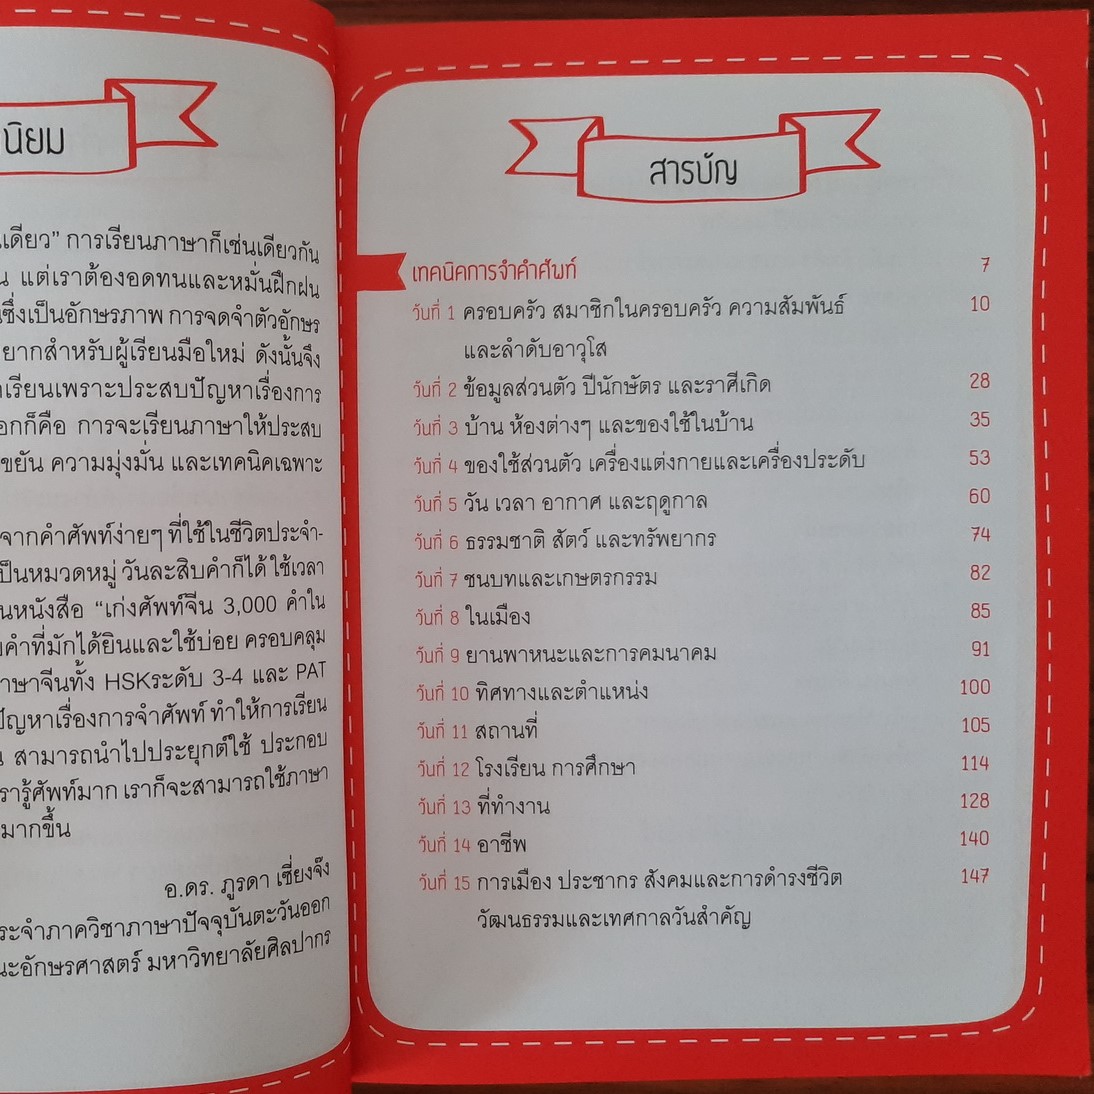 นิยม
เดียว” การเรียนภาษาก็เช่นเดียวกัน
แต่เราต้องอดทนและหมั่นฝึกฝน
ซึ่งเป็นอักษรภาพ การจดจำตัวอักษร
ยากสำหรับผู้เรียนมือใหม่ ดังนั้นจึง
เรียนเพราะประสบปัญหาเรื่องการ
อกก็คือ การจะเรียนภาษาให้ประสบ
ขยัน ความมุ่งมั่น และเทคนิคเฉพาะ
จากคำศัพท์ง่ายๆ ที่ใช้ในชีวิตประจำ-
ป็นหมวดหมู่ วันละสิบคำก็ได้ ใช้เวลา
นหนังสือ “เก่งศัพท์จีน 3,000 คำใน
คำที่มักได้ยินและใช้บ่อย ครอบคลุม
าษาจีนทั้ง HSKระดับ 3-4 และ PAT
ปัญหาเรื่องการจำศัพท์ ทำให้การเรียน
สามารถนำไปประยุกต์ใช้ ประกอบ
รารู้ศัพท์มาก เราก็จะสามารถใช้ภาษา
มากขึ้น
อ.ดร. ภูรดา เซี่ยงจ๊ง
ระจำภาควิชาภาษาปัจจุบันตะวันออก
นะอักษรศาสตร์ มหาวิทยาลัยศิลปากร
สารบัญ
เทคนิคการจำคำศัพท์ 7
วันที่ 1 ครอบครัว สมาชิกในครอบครัว ความสัมพันธ์ 10
และลำดับอาวุโส
วันที่ 2 ข้อมูลส่วนตัว ปีนักษัตร และราศีเกิด 28
วันที่ 3 บ้าน ห้องต่างๆ และของใช้ในบ้าน 35
วันที่ 4 ของใช้ส่วนตัว เครื่องแต่งกายและเครื่องประดับ 53
วันที่ 5 วัน เวลา อากาศ และฤดูกาล 60
วันที่ 6 ธรรมชาติ สัตว์ และทรัพยากร 74
วันที่ 7 ชนบทและเกษตรกรรม 82
วันที่ 8 ในเมือง 85
วันที่ 9 ยานพาหนะและการคมนาคม 91
วันที่ 10 ทิศทางและตำแหน่ง 100
วันที่ 11 สถานที่ 105
วันที่ 12 โรงเรียน การศึกษา 114
วันที่ 13 ที่ทำงาน 128
วันที่ 14 อาชีพ 140
วันที่ 15 การเมือง ประชากร สังคมและการดำรงชีวิต 147
วัฒนธรรมและเทศกาลวันสำคัญ